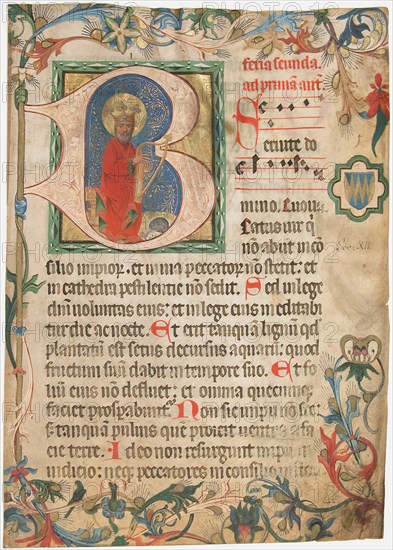 feria secunda.
ad primā ant̄.
Seruite do
mino. Euoua
Eatus uir q
nō abiit in cō
silio impioꝝ: et in uia peccatoꝝ nō stetit: et
in cathedra pestilentie nō sedit. Sed in lege
dn̄i uoluntas eius: et in lege eius meditabi
tur die ac nocte. Et erit tanquā lignū qd
plantatū est secus decursus aquarū: quod
fructum suū dabit in tempore suo. Et fo
liū eius nō defluet: et omnia quecunq;
faciet prosꝑabunt᷑. Non sic impii nō sic:
s; tanquā puluis que proicit uentus a fa
cie terre. Ideo non resurgunt impii in
iudicio: neq; peccatores in consilio